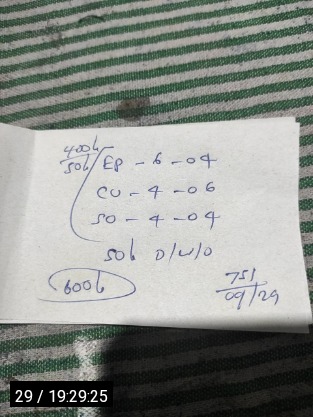 400h
50h / EP - 6 - 04
CU - 4 - 06
SO - 4 - 04
50h D/W/D
600h
751
09/29
29 / 19:29:25